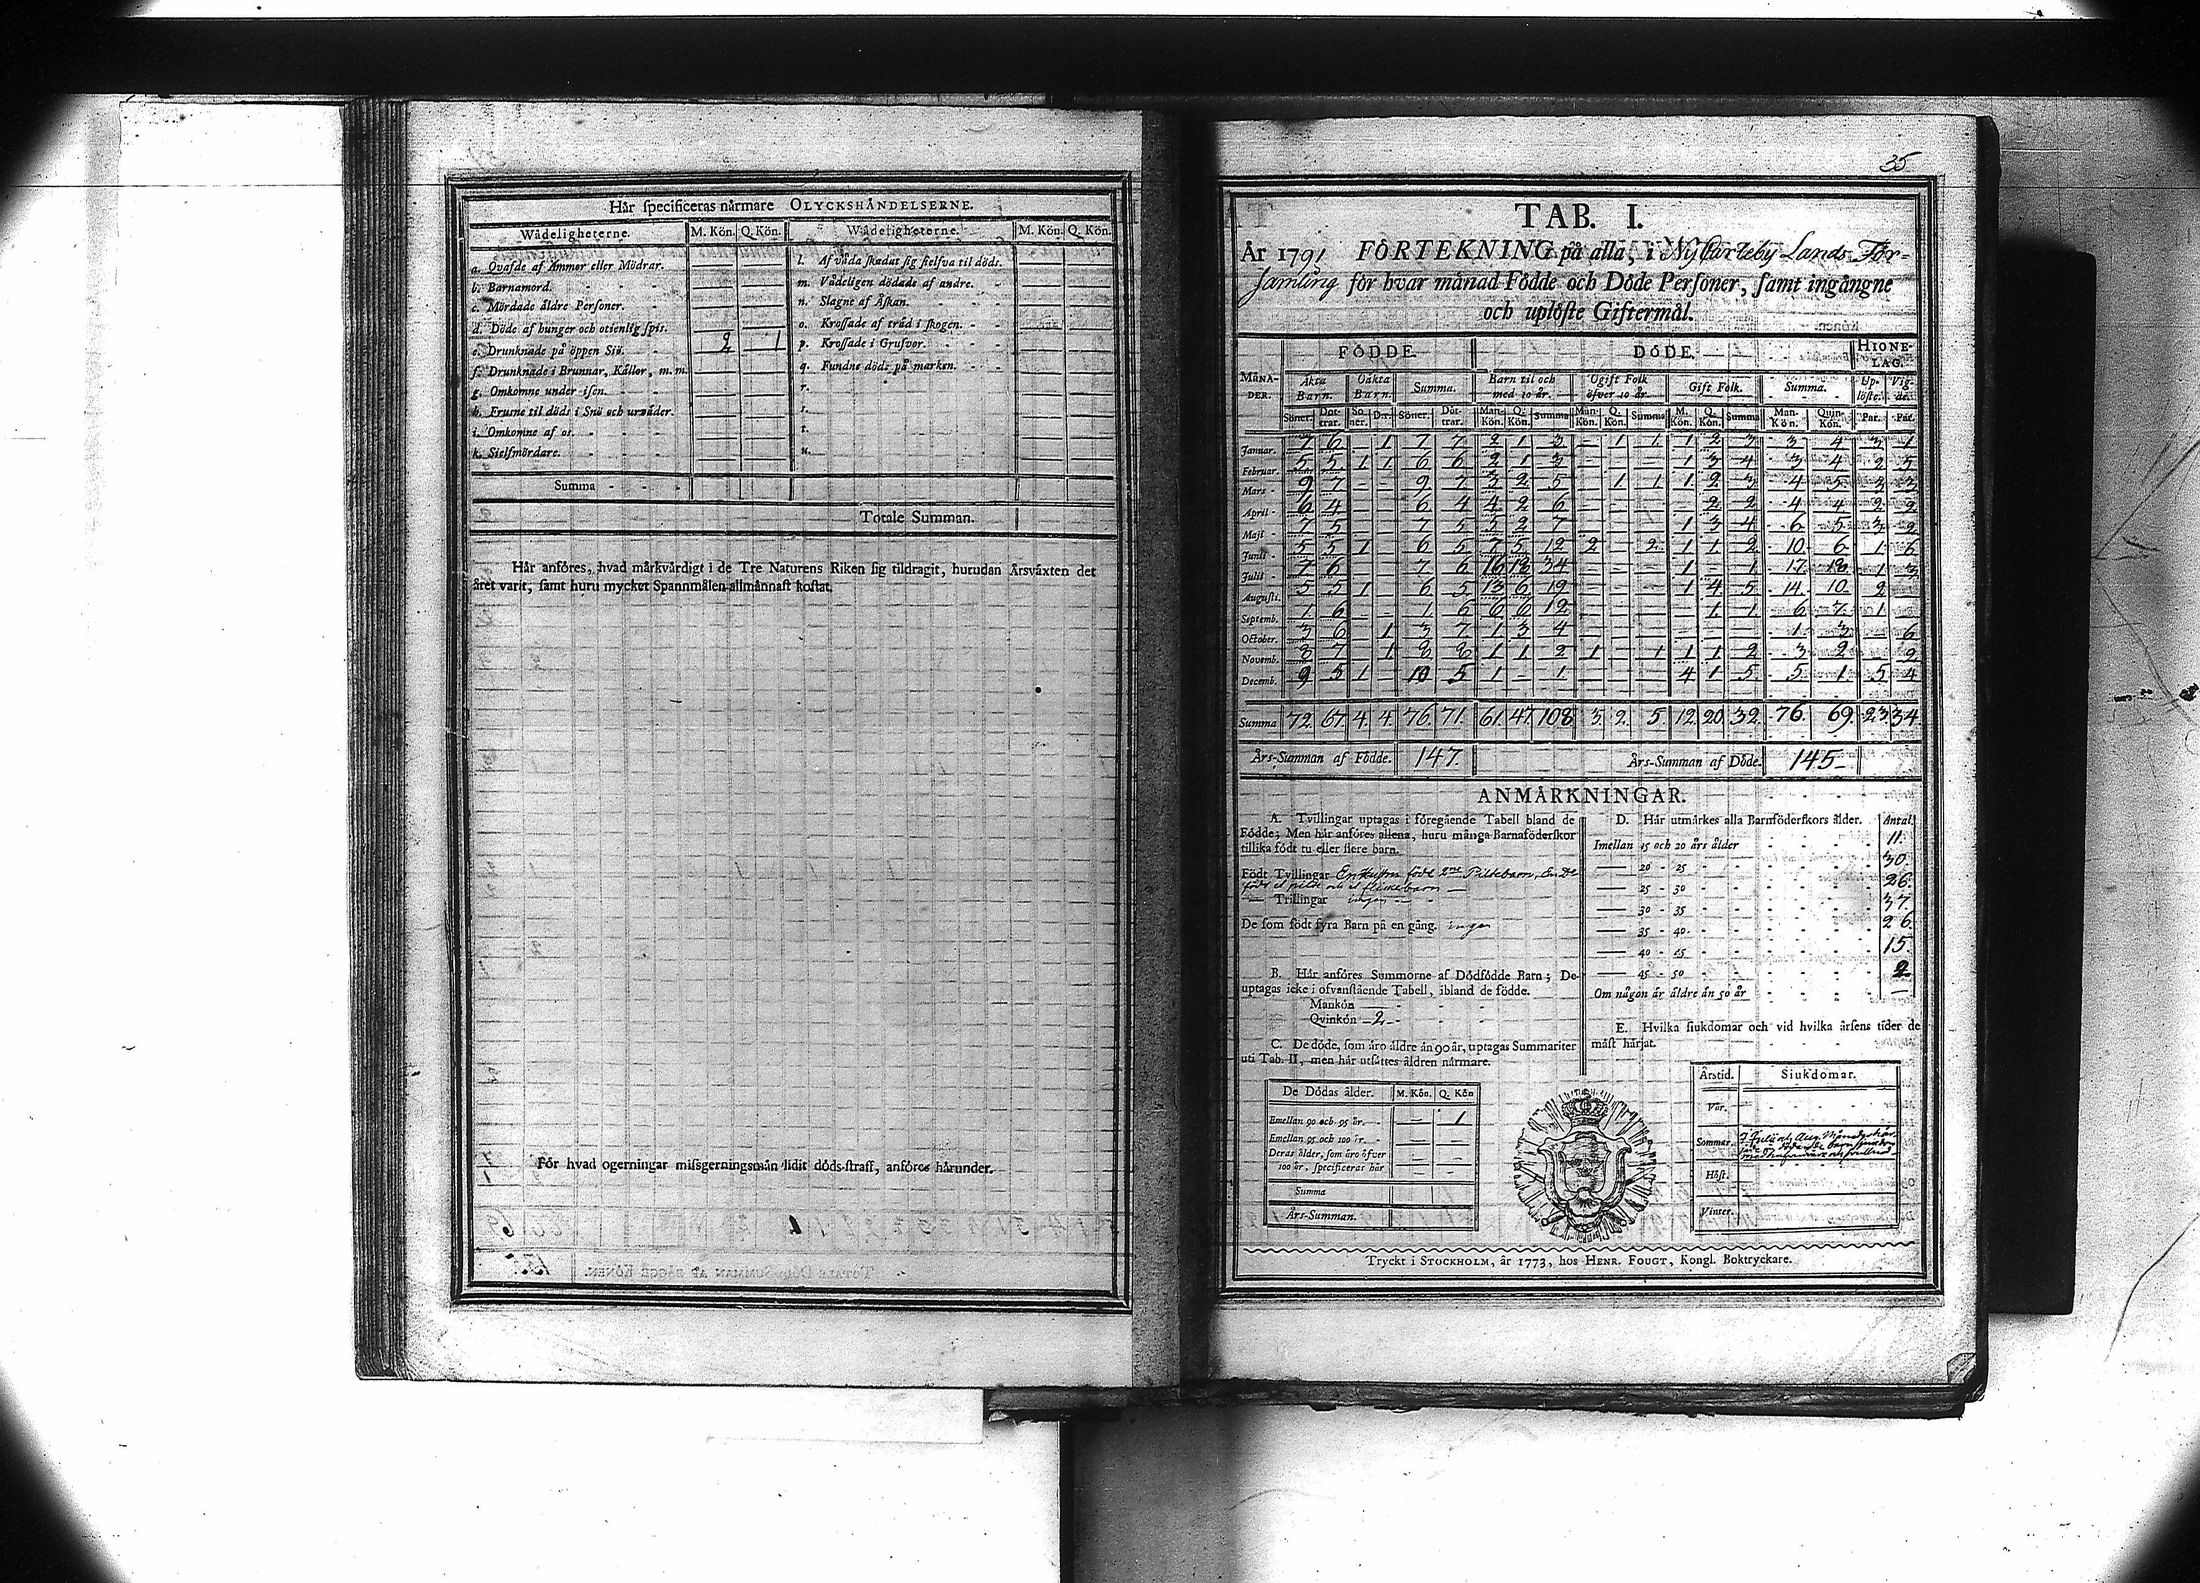 Hår specificeras nårmare OLYCKSHÅNDELSERNE.
Wådeligheterne. M. Kön. Q. Kön. Wådeligheterne. M. Kön. Q. Kön.
a. Qvafde af Ammor eller Mödrar. — — l. Af våda skadat sig sielfva til döds. — —
b. Barnamord. — — m. Vådeligen dödade af andre. — —
c. Mördade åldre Personer. — — n. Slagne af Åskan. — —
d. Döde af hunger och otienlig spis. — — o. Krossade af tråd i skogen. — —
e. Drunknade på öppen Siö. 2 1 p. Krossade i Grufvor. — —
f. Drunknade i Brunnar, Kållor, m. m. — — q. Fundne döde på marken. — —
g. Omkomne under isen. — — r. — —
h. Frusne til döds i Snö och urvåder. — — s. — —
i. Omkomne af os. — — t. — —
k. Sielfmördare. — — u. — —
Summa
Totale Summan.
Hår anföres, hvad mårkvårdigt i de Tre Naturens Riken sig tildragit, hurudan Årsvåxten det
året varit, samt huru mycket Spannmålen allmånnast kostat.
För hvad ogerningar missgerningsmån lidit döds-straff, anföres hårunder.
35
TAB. I.
År 1791 FÖRTEKNING på alla, i Ny Carleby Lands För-
samling för hvar månad Födde och Döde Personer, samt ingångne
och uplöste Giftermål.
FÖDDE. DÖDE. HIONE-
LAG.
MÅNA-
DER. Åkta Barn. Oåkta Barn. Summa. Barn til och med 10 år. Ogift Folk öfver 10 år. Gift Folk. Summa. Up-
löste. Vig-
de.
Söner. Döt-
trar. So
ner. D:r Söner. Döt-
trar. Man-
Kön. Q.
Kön. Summa Man-
Kön. Q.
Kön. Summa M.
Kön. Q.
Kön. Summa Man-
Kön. Qvin-
Kön. Par. Par.
Januar. 7 6 - 1 7 7 2 1 3 - 1 1 1 2 3 3 4 3 1
Februar. 5 5 1 1 6 6 2 1 3 - - - 1 3 4 3 4 2 5
Mars - 9 7 - - 9 7 3 2 5 - 1 1 1 2 3 4 5 3 3
April - 6 4 - - 6 4 4 2 6 - - - - 2 2 4 4 2 2
Maji - 7 5 - - 7 5 5 2 7 - - - 1 3 4 6 5 3 2
Junii - 5 5 1 - 6 5 7 5 12 2 - 2 1 1 2 10 6 1 6
Julii - 7 6 - - 7 6 16 18 34 - - - 1 - 1 17 18 1 3
Augusti. 5 5 1 - 6 5 13 6 19 - - - 1 4 5 14 10 2 -
Septemb. 1 6 - - 1 6 6 6 12 - - - - 1 1 6 7 1 -
October. 3 6 - 1 3 7 1 3 4 - - - - - - 1 3 - 6
Novemb. 8 7 - 1 8 8 1 1 2 1 - 1 1 1 2 3 2 - 2
Decemb. 9 5 1 - 10 5 1 - 1 - - - 4 1 5 5 1 5 4
Summa 72. 67. 4. 4. 76. 71. 61. 47. 108 3. 2. 5. 12. 20 32. 76. 69. 23. 34.
Års-Summan af Födde. 147. Års-Summan af Döde. 145
ANMÅRKNINGAR.
A. Tvillingar uptagas i föregående Tabell bland de
Födde; Men hår anföres allena, huru många Barnaföderskor
tillika födt tu eller flere barn.
Födt Tvillingar En Hustru födt 2ne Piltebarn, En D:o
födt et pilt och et flickebarn —
— Trillingar ingen
De som födt fyra Barn på en gång. ingen
B. Hår anföres Summorne af Dödfödde Barn; De
uptagas icke i ofvanstående Tabell, ibland de födde.
Mankön —
Qvinkön — 2 —
C. De döde, som åro åldre ån 90 år, uptagas Summariter
uti Tab. II, men hår utsåttes åldren nårmare.
De Dödas ålder. M. Kön. Q. Kön
Emellan 90 och 95 år. — 1
Emellan 95 och 100 år. — —
Deras ålder, som åro öfver
100 år, specificeras hår — —
Summa
Års-Summan.
D. Hår utmårkes alla Barnföderskors ålder. Antal
Imellan 15 och 20 års ålder 11.
— 20 - 25 30.
— 25 - 30 26.
— 30 - 35 37.
— 35 - 40. 26.
— 40 - 45 15.
— 45 - 50 2
Om någon år åldre ån 50 år —
E. Hvilka siukdomar och vid hvilka årsens tider de
måst hårjat.
Årstid. Siukdomar.
Vår.
Sommar.
Höst.
Vinter.
Tryckt i STOCKHOLM, år 1773, hos HENR. FOUGT, Kongl. Boktryckare.